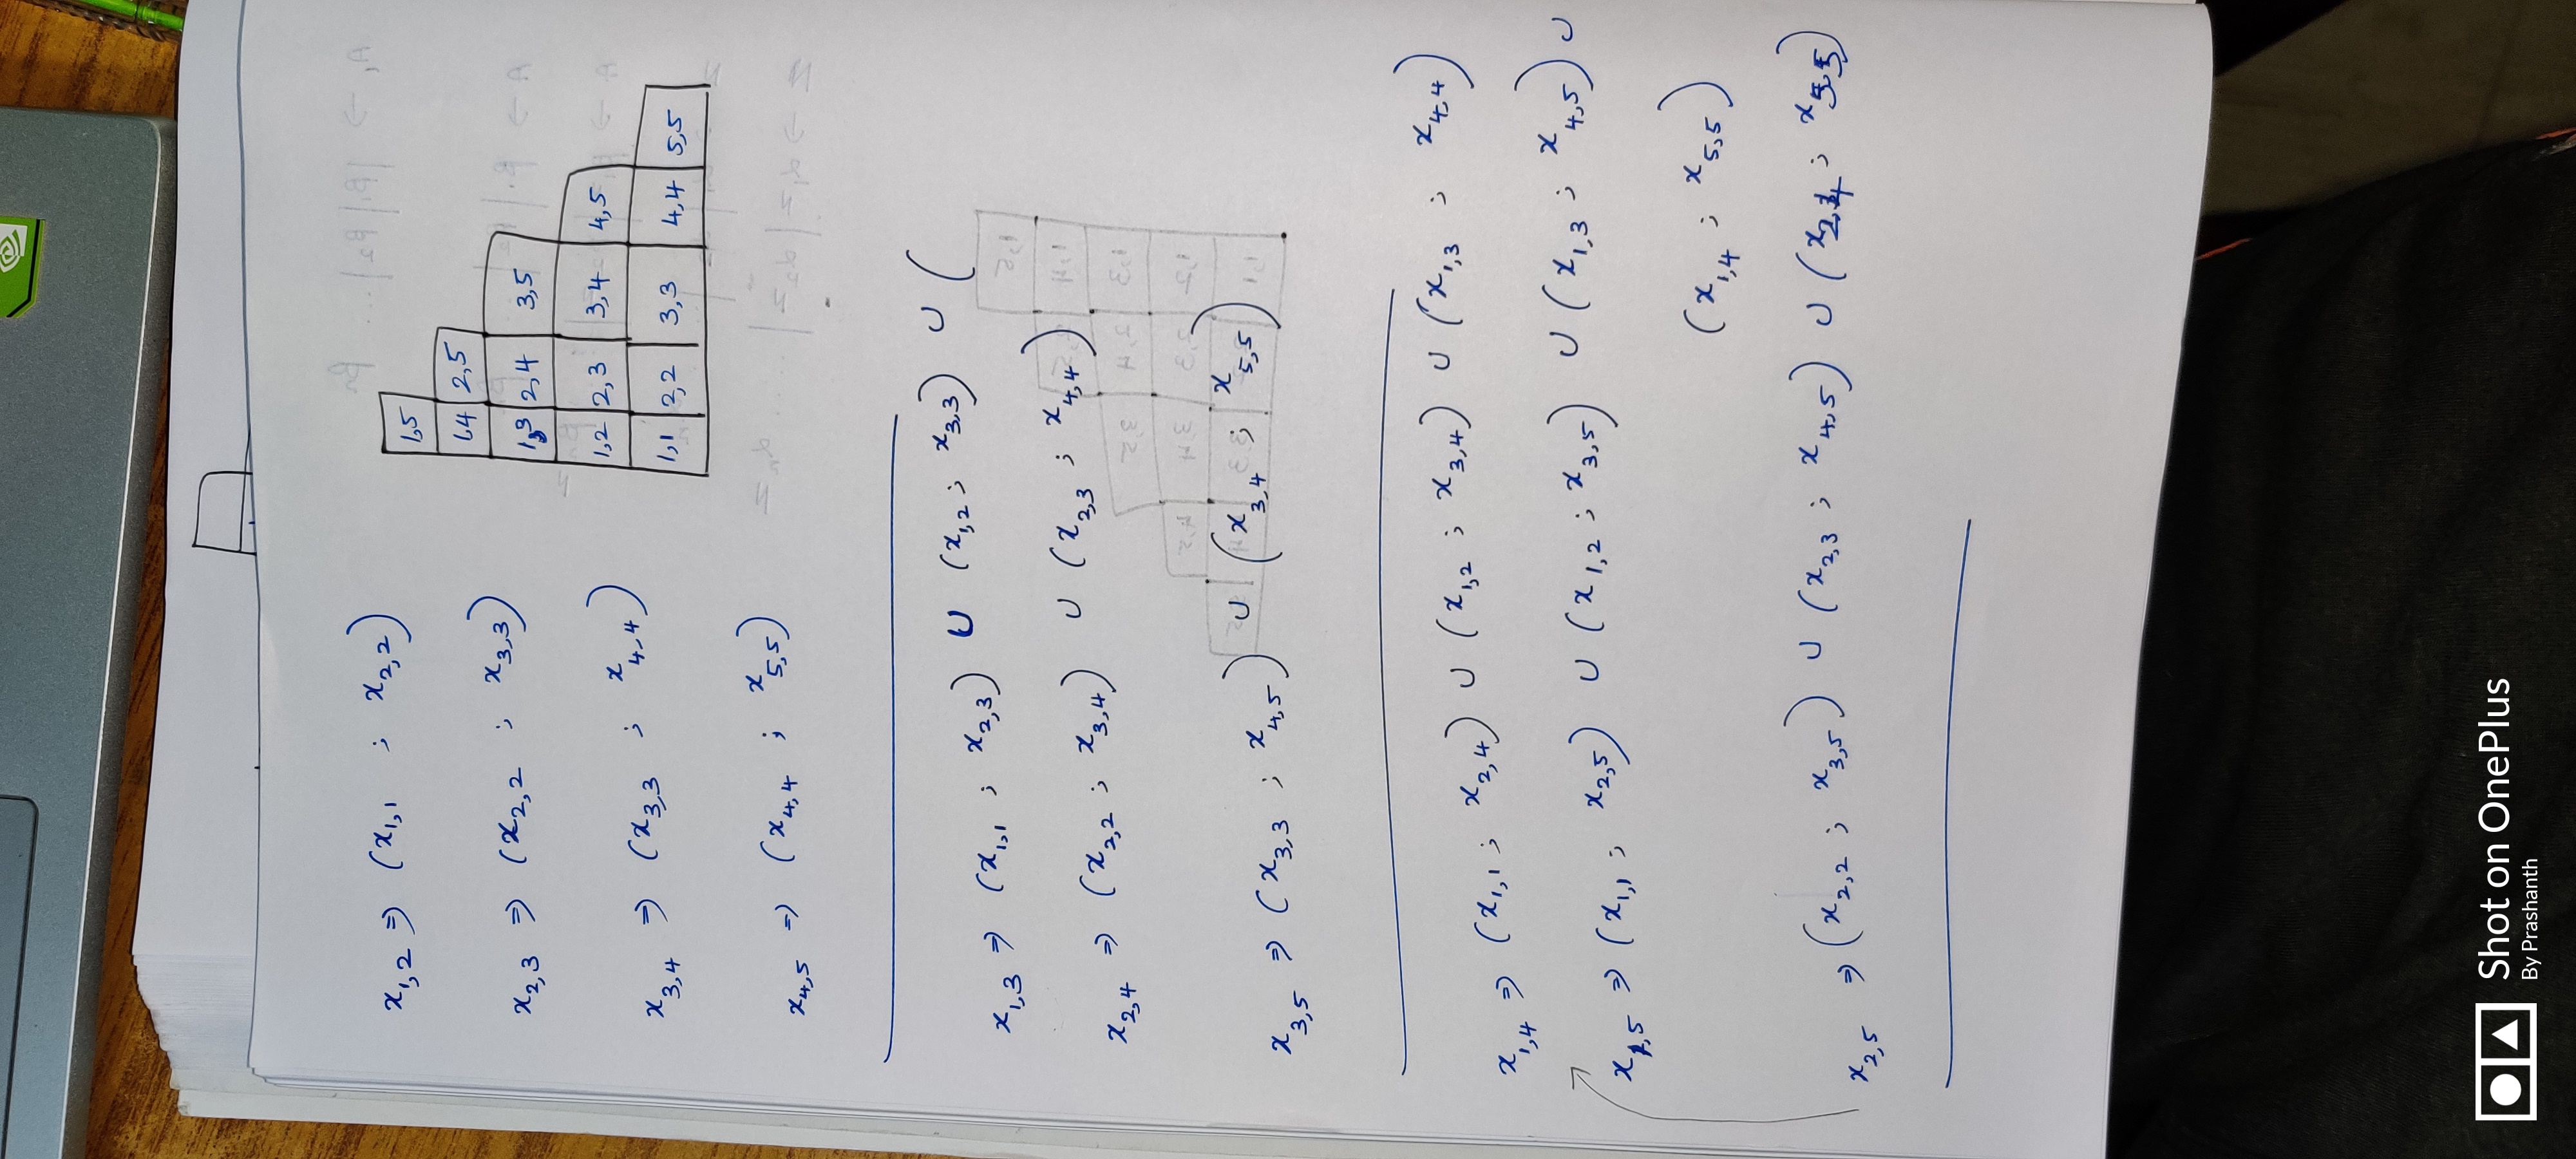 x1,2 ⇒ (x1,1 ; x2,2)
x2,3 ⇒ (x2,2 ; x3,3)
x3,4 ⇒ (x3,3 ; x4,4)
x4,5 ⇒ (x4,4 ; x5,5)
1,5
1,4 2,5
1,3 2,4 3,5
1,2 2,3 3,4 4,5
1,1 2,2 3,3 4,4 5,5
x1,3 ⇒ (x1,1 ; x2,3) ∪ (x1,2 ; x3,3) ∪ (
x2,4 ⇒ (x2,2 ; x3,4) ∪ (x2,3 ; x4,4)
x3,5 ⇒ (x3,3 ; x4,5) ∪ (x3,4 ; x5,5)
x1,4 ⇒ (x1,1 ; x2,4) ∪ (x1,2 ; x3,4) ∪ (x1,3 ; x4,4)
x1,5 ⇒ (x1,1 ; x2,5) ∪ (x1,2 ; x3,5) ∪ (x1,3 ; x4,5) ∪
(x1,4 ; x5,5)
x2,5 ⇒ (x2,2 ; x3,5) ∪ (x2,3 ; x4,5) ∪ (x2,4 ; x5,5)
Shot on OnePlus
By Prashanth